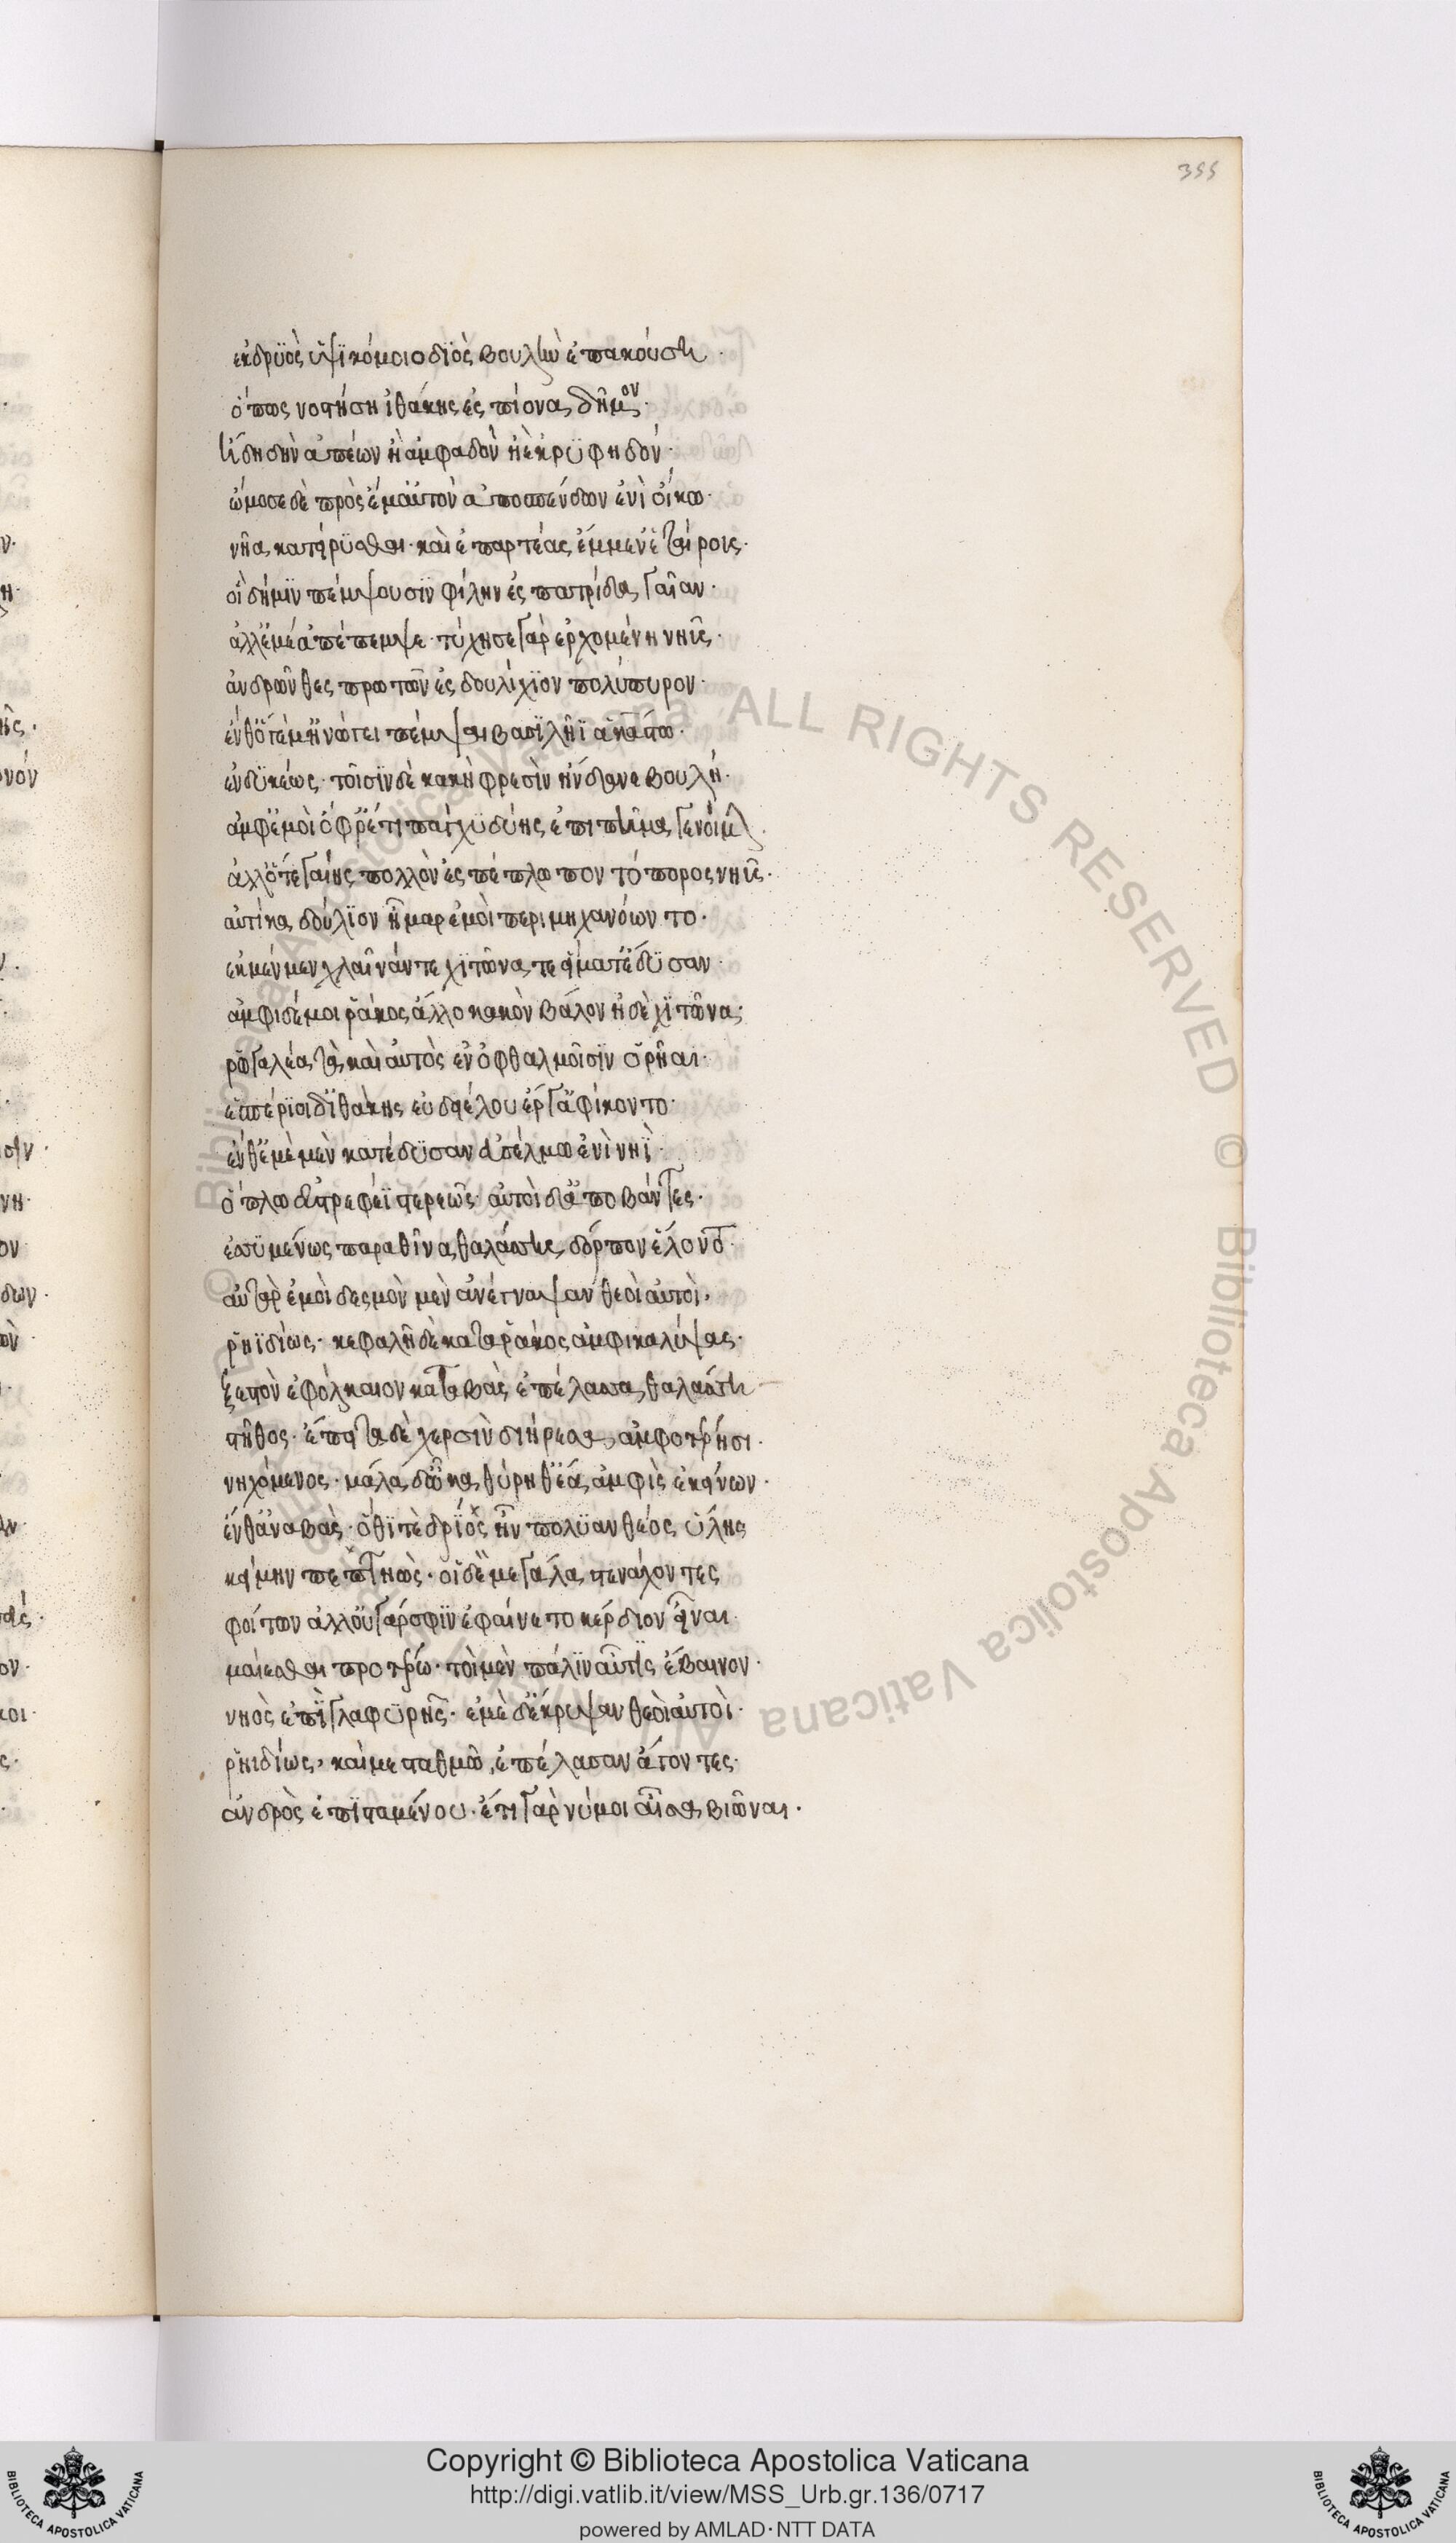 355
ἐκ δρυὸς ὑψϊκόμοιο δϊὸς βουλὴν ἐπακούση·
ὅπως νοστήση ἰθάκης ἐς πίονα δῆμον·
ἤδη δὴν ἀπεών ἢ ἀμφαδὸν ἠὲ κρϋφηδόν·
ὤμοσε δὲ πρὸς ἔμ' αὐτὸν ἀποσπένδων ἐνὶ οἴκω·
νῆα κατειρύσθαι· καὶ ἐπαρτέας ἔμμεν ἑταίρους·
οἳ δή μϊν πέμψουσϊν φίλην ἐς πατρίδα γαῖαν·
ἀλλ' ἐμὲ ἀπέπεμψε· τύχησε γὰρ ἐρχομένη νηῦς·
ἀνδρῶν θεσπρωτῶν ἐς δουλίχϊον πολύπυρον·
ἔνθ' ὅτέ μ' ἠνώγει πέμψαι βασϊλῆϊ ἀκάστω·
ἐνδϋκέως· τοῖσϊν δὲ κακὴ φρεσὶν ἥνδανε βουλή·
ἀμφ' ἐμοὶ ὄφρ' ἔτι πάγχϋ δύης ἐπὶ πῆμα γενοίμην·
ἀλλ' ὅτε γαίης πολλὸν ἐς πέπλω πον τόπορος νηῦς·
αὐτίκα δούλϊον ἦμαρ ἐμοὶ περιμηχανόωντο·
ἐκ μέν με χλαῖνάν τε χϊτῶνα τε εἵματ' ἔδϋσαν·
ἀμφὶ δέ μοι ῥάκος ἄλλο κακὸν βάλον ἠδὲ χϊτῶνα·
ῥωγαλέα τὰ καὶ αὐτὸς ἐν ὀφθαλμοῖσϊν ὅρηαι·
ἑσπέρϊοι δ' ἰθάκης εὐδειέλου ἔργ' ἀφίκοντο·
ἔνθ' ἐμὲ μὲν κατέδϋσαν ἐϋσέλμω ἐνὶ νηΐ·
ὅπλω ἐϋστρεφέϊ στερεῶς· αὐτοὶ δ' ἀποβάντες·
ἐσσϋμένως παρὰ θῖνα θαλάσσης δόρπον ἕλοντο·
αὐτὰρ ἐμοὶ δεσμὸν μὲν ἀνέγναψαν θεοὶ αὐτοὶ·
ῥηϊδίως· κεφαλῆ δὲ κατὰ ῥάκος ἀμφικαλύψας·
ξεστὸν ἐφόλκαιον καταβὰς ἐπέλασσα θαλάσση
στῆθος· ἔπειτα δὲ χερσὶν διήρεσα ἀμφοτέρησι·
νηχόμενος· μάλα δ' ὦκα θύρηθ' ἔα ἀμφὶς ἐκείνων·
ἔνθ' ἀναβὰς· ὅθϊ τὲ δρΐος ἦν πολϋανθέος ὕλης
κείμην πεπτηώς· οἱ δὲ μεγάλα στενάχοντες
φοίτων ἀλλ' οὐ γάρ σφϊν ἐφαίνετο κέρδϊον εἶναι·
μαίεσθαι προτέρω· τοὶ μὲν πάλϊν αὖτϊς ἔβαινον·
νηὸς ἐπὶ γλαφϋρῆς· ἐμὲ δ' ἔκρυψαν θεοὶ αὐτοὶ·
ῥηιδίως, καί με σταθμῶ, ἐπέλασαν ἄγοντες·
ἀνδρὸς ἐπϊσταμένου· ἔτι γάρ νύ μοι αἶσα βιῶναι·
© Biblioteca Apostolica Vaticana ALL RIGHTS RESERVED © Biblioteca Apostolica Vaticana ALL RIGHTS RESERVED
Copyright © Biblioteca Apostolica Vaticana
http://digi.vatlib.it/view/MSS_Urb.gr.136/0717
powered by AMLAD·NTT DATA
BIBLIOTECA APOSTOLICA VATICANA
BIBLIOTECA APOSTOLICA VATICANA